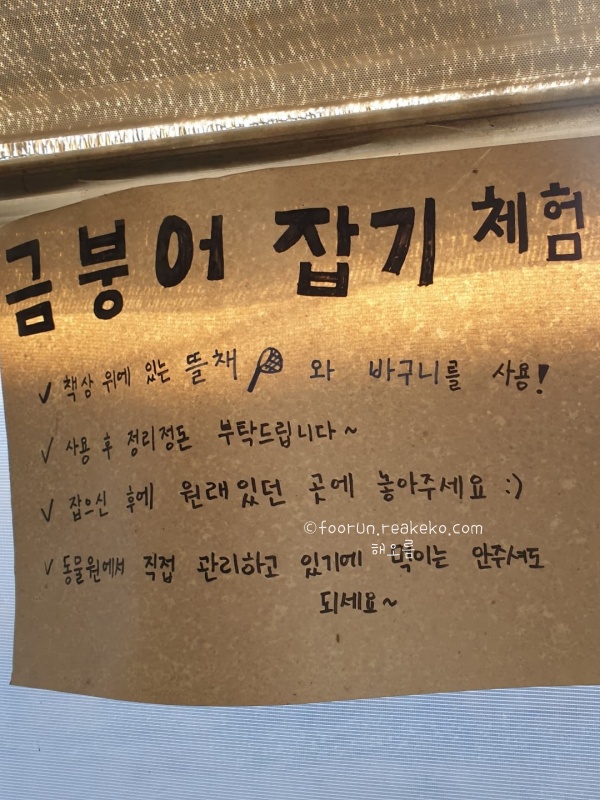 금붕어 잡기 체험
✓ 책상 위에 있는 뜰채 와 바구니를 사용!
✓ 사용 후 정리정돈 부탁드립니다~
✓ 잡으신 후에 원래있던 곳에 놓아주세요 :)
©foorun.reakeko.com
해오름
✓ 동물원에서 직접 관리하고 있기에 먹이는 안주셔도
되세요~